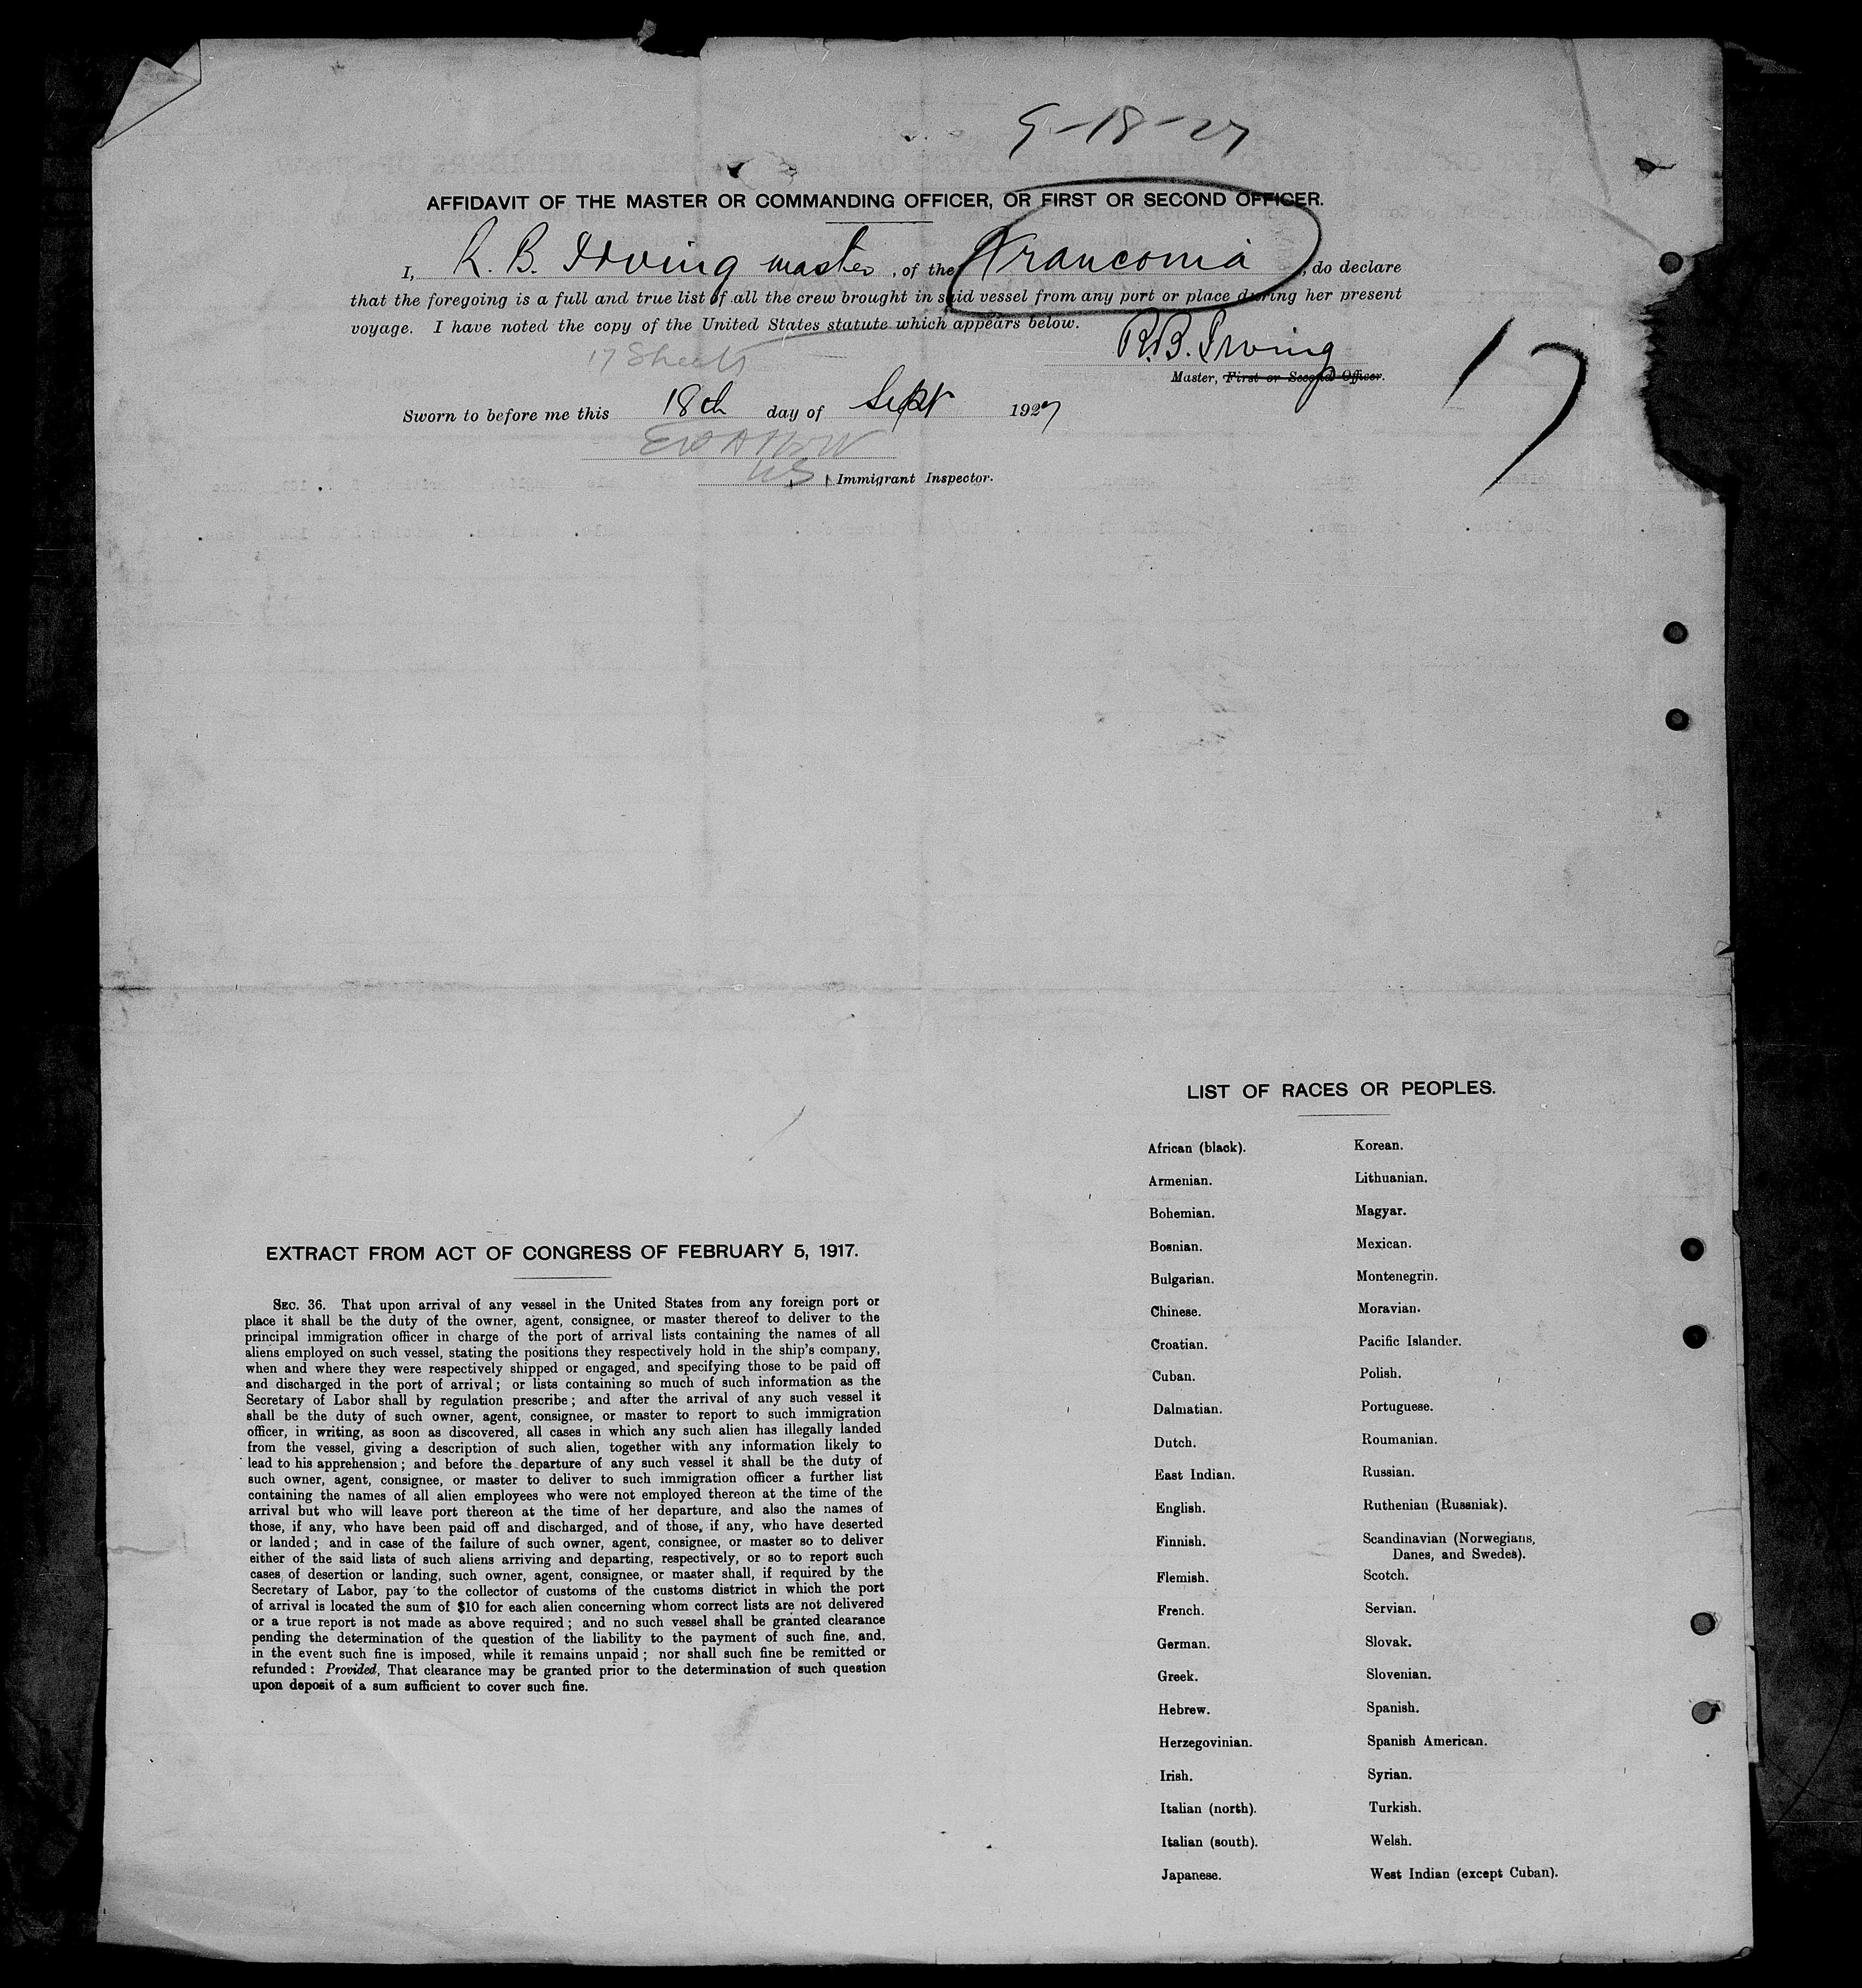 9-18-27
AFFIDAVIT OF THE MASTER OR COMMANDING OFFICER, OR FIRST OR SECOND OFFICER.
I, R. B. Irving master, of the Franconia, do declare
that the foregoing is a full and true list of all the crew brought in said vessel from any port or place during her present
voyage. I have noted the copy of the United States statute which appears below.
17 Sheets
R.B. Irving
Master, First or Second Officer.
17
Sworn to before me this 18th day of Sept 1927
US Immigrant Inspector.
EXTRACT FROM ACT OF CONGRESS OF FEBRUARY 5, 1917.
SEC. 36. That upon arrival of any vessel in the United States from any foreign port or
place it shall be the duty of the owner, agent, consignee, or master thereof to deliver to the
principal immigration officer in charge of the port of arrival lists containing the names of all
aliens employed on such vessel, stating the positions they respectively hold in the ship's company,
when and where they were respectively shipped or engaged, and specifying those to be paid off
and discharged in the port of arrival; or lists containing so much of such information as the
Secretary of Labor shall by regulation prescribe; and after the arrival of any such vessel it
shall be the duty of such owner, agent, consignee, or master to report to such immigration
officer, in writing, as soon as discovered, all cases in which any such alien has illegally landed
from the vessel, giving a description of such alien, together with any information likely to
lead to his apprehension; and before the departure of any such vessel it shall be the duty of
such owner, agent, consignee, or master to deliver to such immigration officer a further list
containing the names of all alien employees who were not employed thereon at the time of the
arrival but who will leave port thereon at the time of her departure, and also the names of
those, if any, who have been paid off and discharged, and of those, if any, who have deserted
or landed; and in case of the failure of such owner, agent, consignee, or master so to deliver
either of the said lists of such aliens arriving and departing, respectively, or so to report such
cases of desertion or landing, such owner, agent, consignee, or master shall, if required by the
Secretary of Labor, pay to the collector of customs of the customs district in which the port
of arrival is located the sum of $10 for each alien concerning whom correct lists are not delivered
or a true report is not made as above required; and no such vessel shall be granted clearance
pending the determination of the question of the liability to the payment of such fine, and,
in the event such fine is imposed, while it remains unpaid; nor shall such fine be remitted or
refunded: Provided, That clearance may be granted prior to the determination of such question
upon deposit of a sum sufficient to cover such fine.
LIST OF RACES OR PEOPLES.
African (black). Korean.
Armenian. Lithuanian.
Bohemian. Magyar.
Bosnian. Mexican.
Bulgarian. Montenegrin.
Chinese. Moravian.
Croatian. Pacific Islander.
Cuban. Polish.
Dalmatian. Portuguese.
Dutch. Roumanian.
East Indian. Russian.
English. Ruthenian (Russniak).
Finnish. Scandinavian (Norwegians,
Danes, and Swedes).
Flemish. Scotch.
French. Servian.
German. Slovak.
Greek. Slovenian.
Hebrew. Spanish.
Herzegovinian. Spanish American.
Irish. Syrian.
Italian (north). Turkish.
Italian (south). Welsh.
Japanese. West Indian (except Cuban).